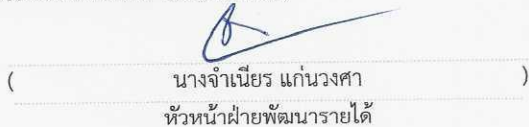 ( นางจำเนียร แก่นวงศา )
หัวหน้าฝ่ายพัฒนารายได้